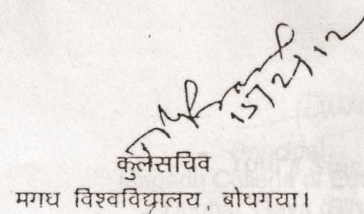 15/2/12
कुलसचिव
मगध विश्वविद्यालय, बोधगया।